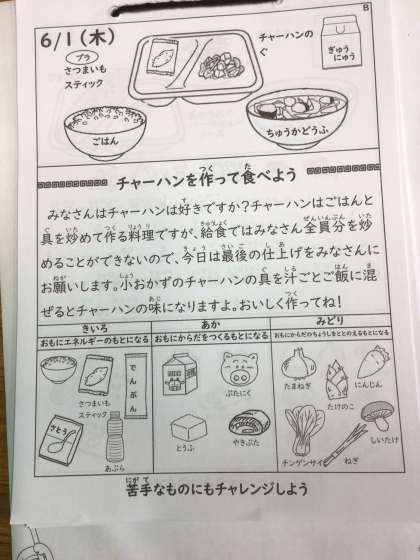 B
6/1(木)
プラ
さつまいも
スティック
チャーハンの
ぐ
ぎゅう
にゅう
ごはん
ちゅうかどうふ
チャーハンを作って食べよう
みなさんはチャーハンは好きですか?チャーハンはごはんと
具を炒めて作る料理ですが、給食ではみなさん全員分を炒
めることができないので、今日は最後の仕上げをみなさんに
お願いします。小おかずのチャーハンの具を汁ごとご飯に混
ぜるとチャーハンの味になりますよ。おいしく作ってね!
きいろ
おもにエネルギーのもとになる
あか
おもにからだをつくるもとになる
みどり
おもにからだのちょうしをととのえるもとになる
さつまいも
スティック
でんぷん
さとう
あぶら
ぶたにく
とうふ
やきぶた
たまねぎ
たけのこ
にんじん
チンゲンサイ
ねぎ
しいたけ
苦手なものにもチャレンジしよう